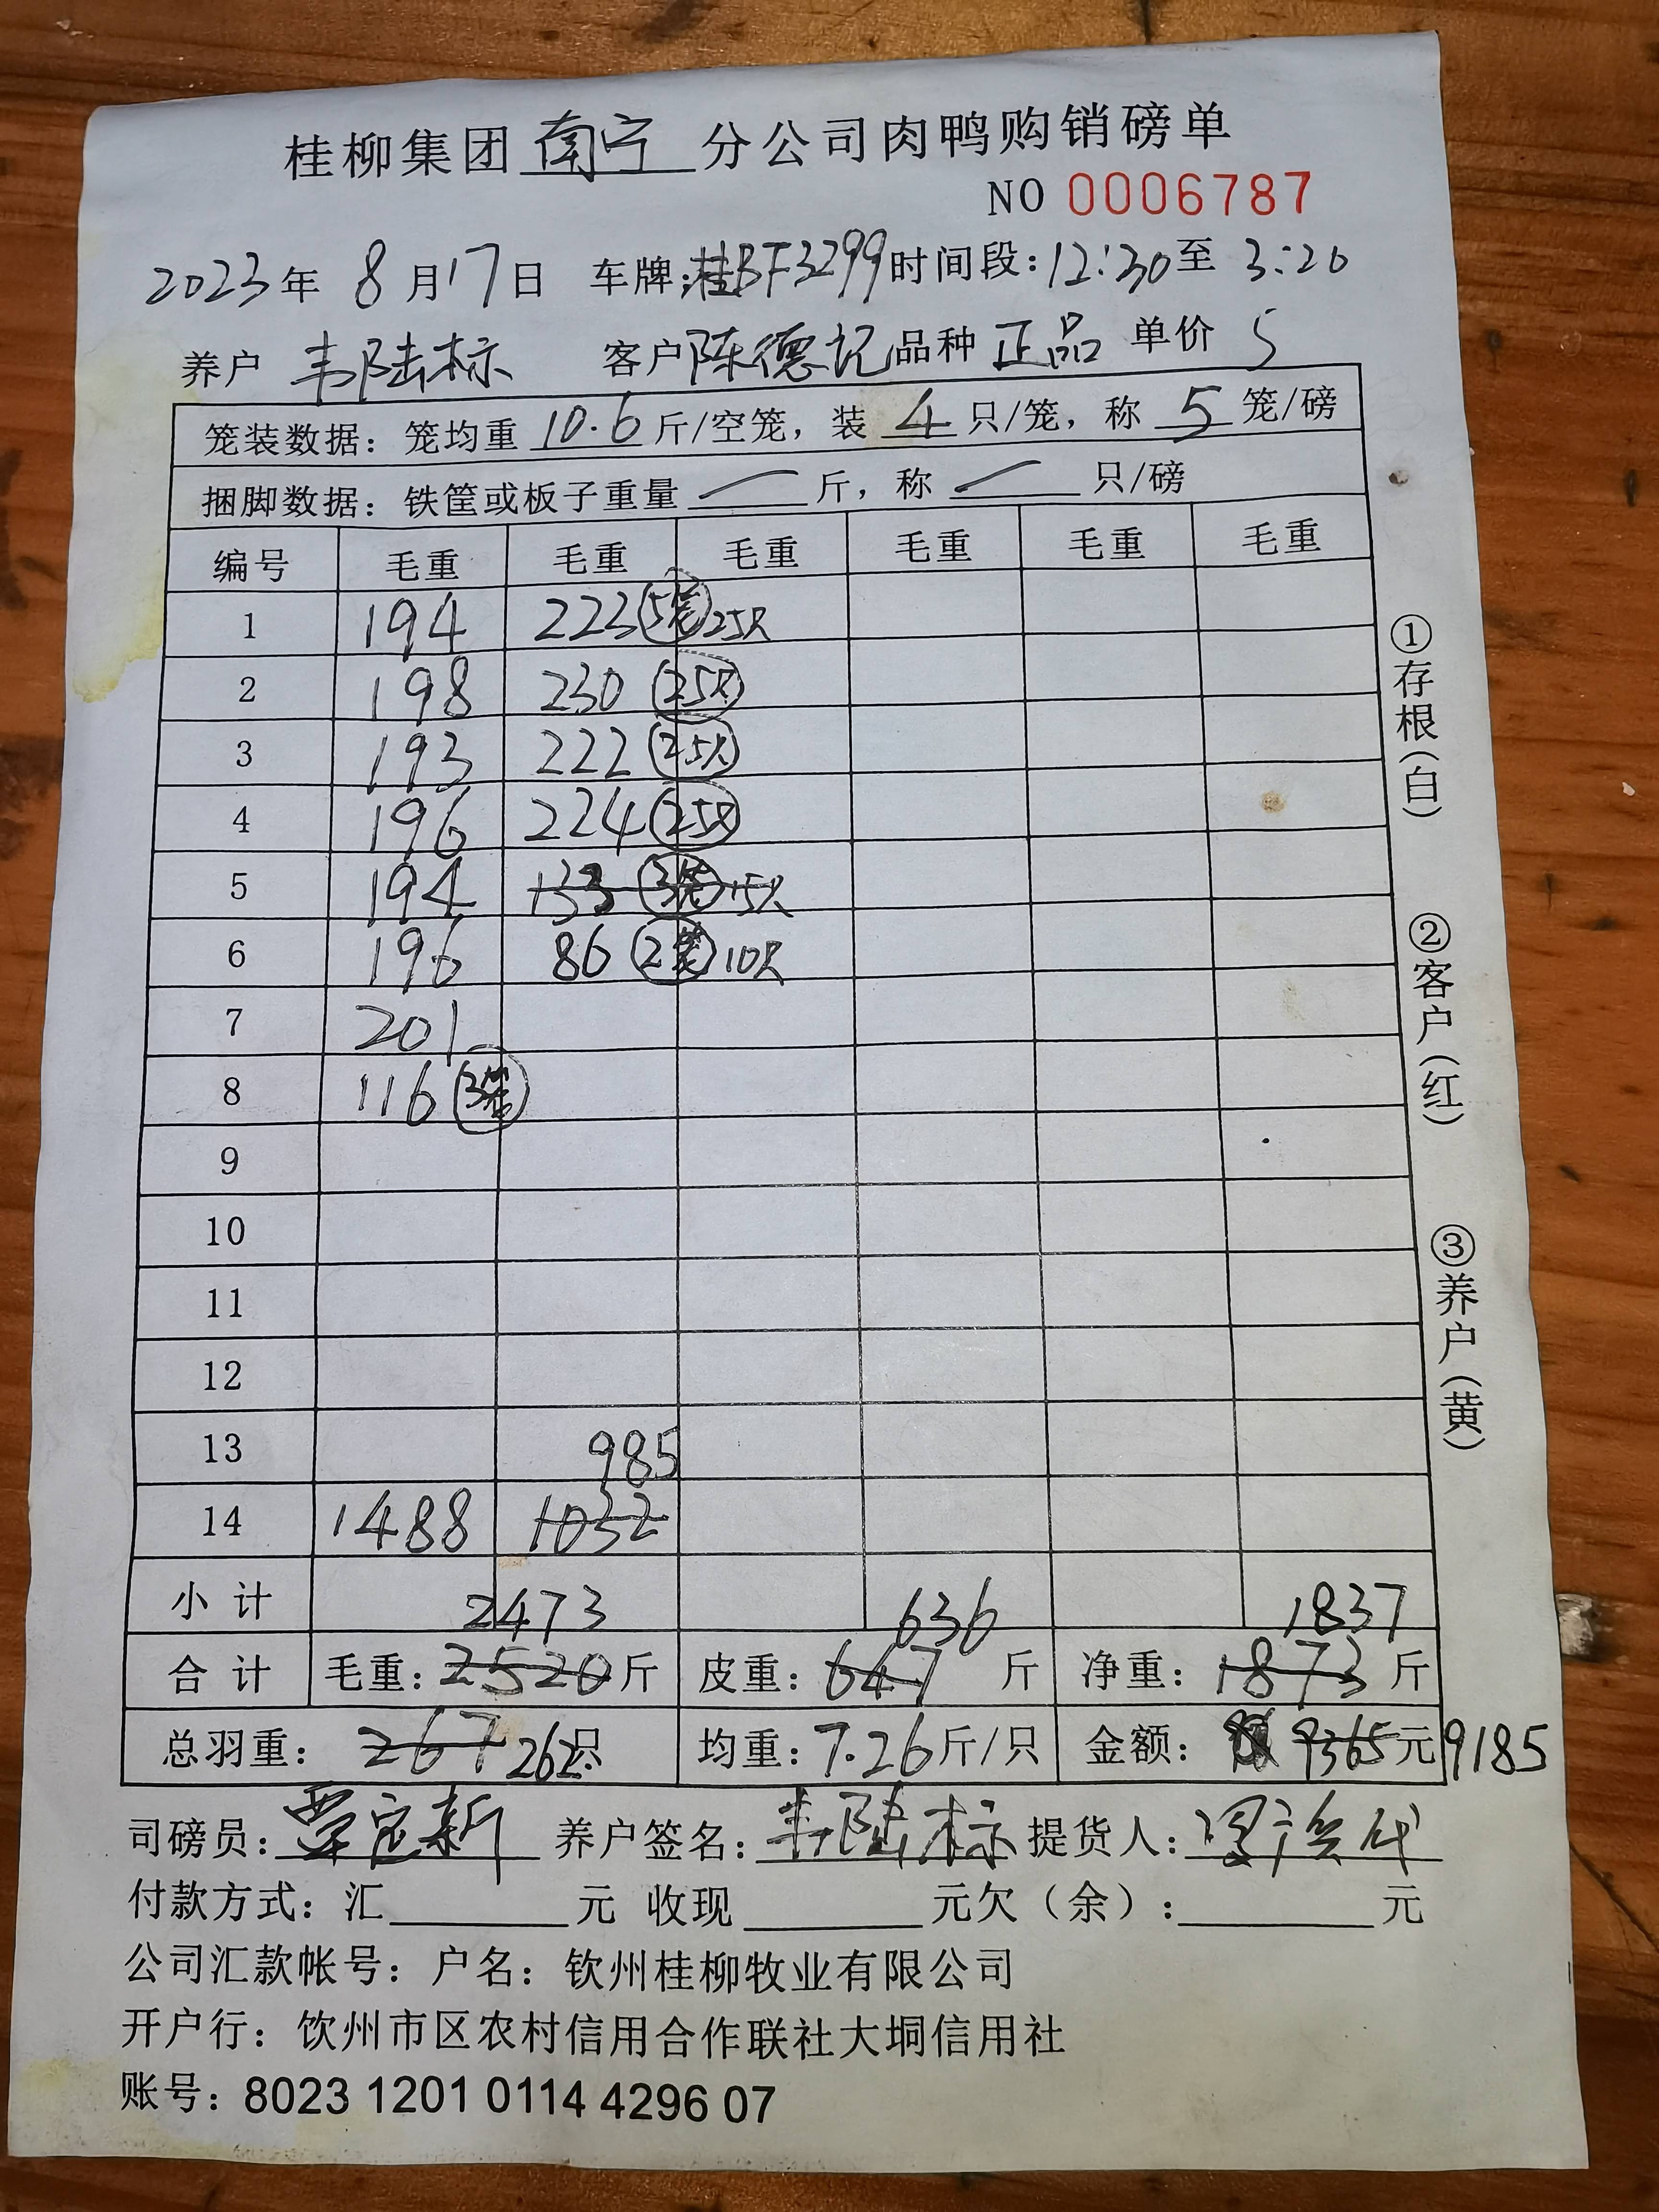 桂柳集团南宁分公司肉鸭购销磅单
NO 0006787
2023年 8月17日 车牌:桂BF3299 时间段:12:30至 3:20
养户 韦陆标 客户 陈德记 品种 正品 单价 5
笼装数据：笼均重 10.6 斤/空笼，装 4 只/笼，称 5 笼/磅
捆脚数据：铁筐或板子重量 — 斤，称 — 只/磅
编号 毛重 毛重 毛重 毛重 毛重 毛重
1 194 223 5笼 25只
2 198 230 25只
3 193 222 25只
4 196 224 25只
5 194 133 3笼 15只
6 196 86 2笼 10只
7 201
8 116 3笼
9
10
11
12
13 985
14 1488 1032
小计 2473 636 1837
合计 毛重：2520斤 皮重：647 斤 净重：1873斤
总羽重： 267 262只 均重：7.26斤/只 金额： 9365元 9185
司磅员：覃定新 养户签名：韦陆标 提货人：
付款方式：汇 元 收现 元欠（余）： 元
公司汇款帐号：户名：钦州桂柳牧业有限公司
开户行：饮州市区农村信用合作联社大垌信用社
账号：8023 1201 0114 4296 07
①存根（白）
②客户（红）
③养户（黄）